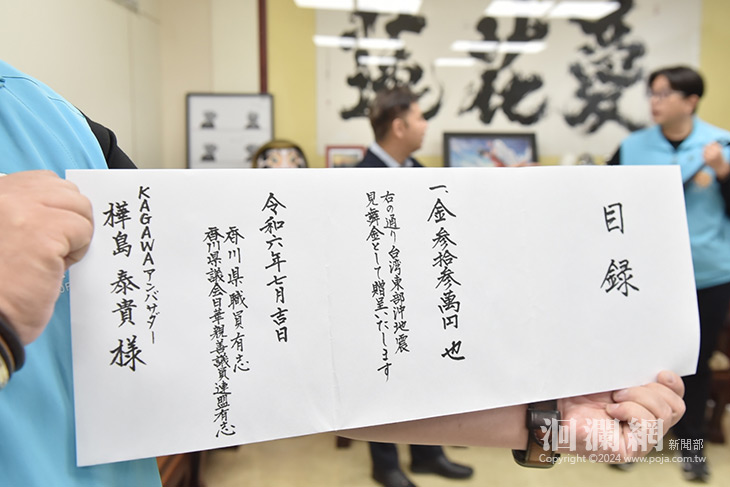 目録
一、金参拾参萬円也
右の通り台湾東部沖地震
見舞金として贈呈いたします
令和六年七月吉日
香川県職員有志
香川県議会日華親善議員連盟有志
KAGAWAアンバサダー
樺島泰貴様
愛
花蓮
洄瀾網 新聞部
Copyright ©2024 www.poja.com.tw